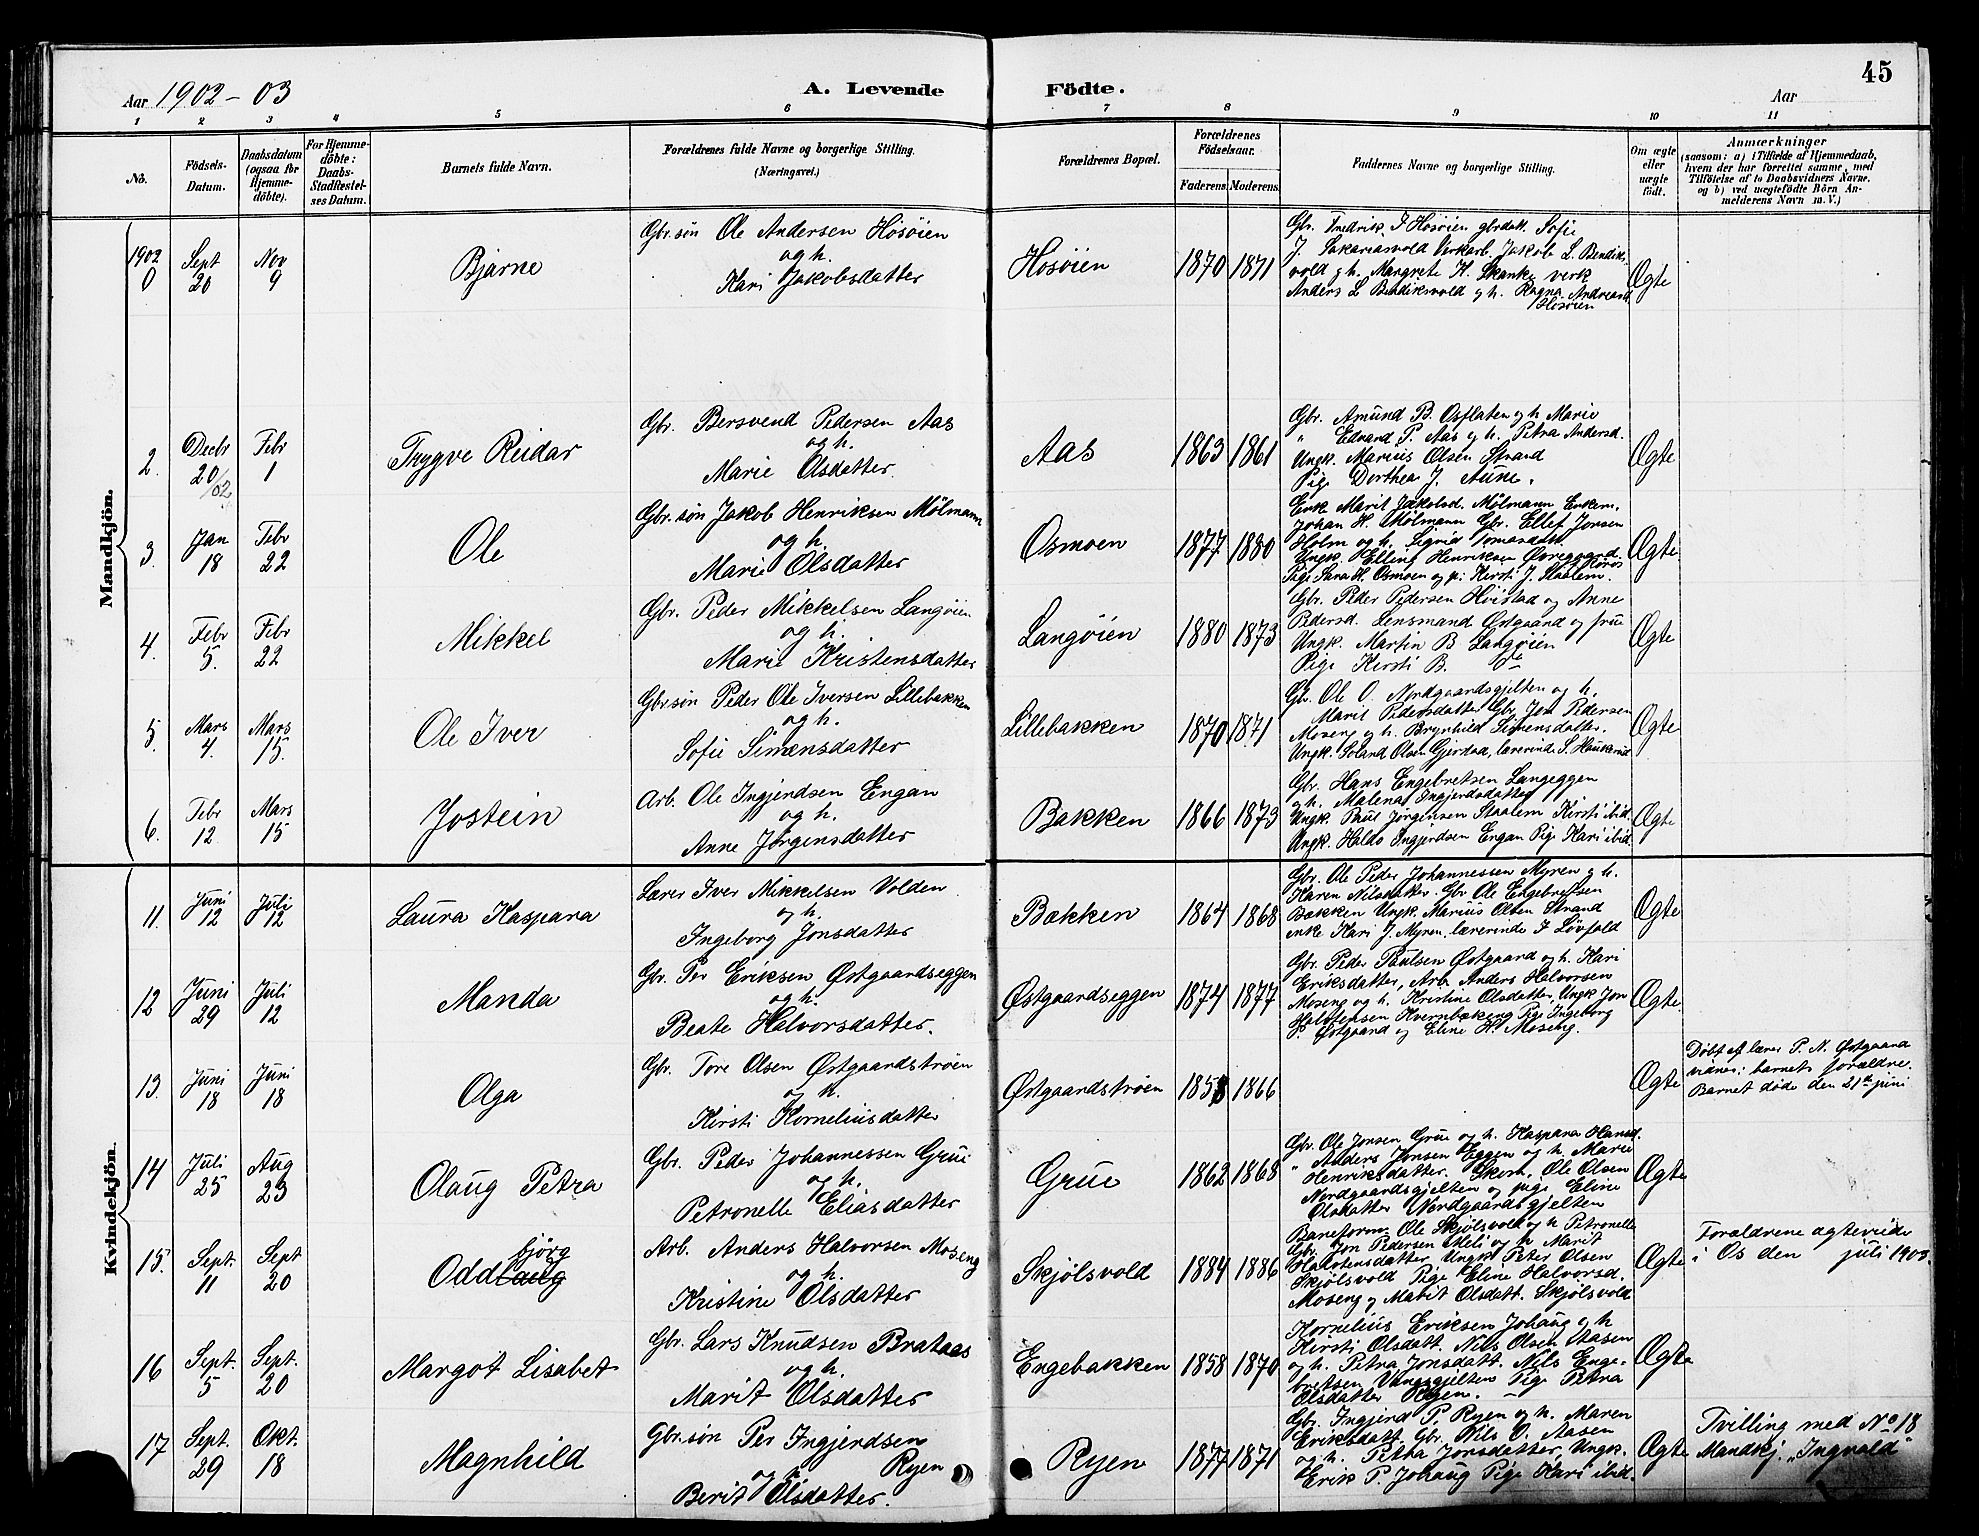 45
Aar 1902-03
A. Levende Födte.
Aar
1 2 3 4 5 6 7 8 9 10 11
No.
Födsels-Datum.
Daabsdatum (ogsaa for Hjemme-döbte).
For Hjemme-döbte: Daabs-Stadfæstel-ses Datum.
Barnets fulde Navn.
Forældrenes fulde Navne og borgerlige Stilling. (Næringsvei.)
Forældrenes Bopæl.
Forældrenes Födselsaar.
Faderens. Moderens.
Faddernes Navne og borgerlige Stilling.
Om ægte eller uægte födt.
Anmærkninger
(saasom: a) i Tilfælde af Hjemmedaab, hvem der har forrettet samme, med Tilföielse af to Daabsvidners Navne. og b) ved uegtefödte Börn Anmelderens Navn m. V.)
Mandkjön.
1902
0 Sept 20 Nov 9 Bjarne
Gbr.søn Ole Andersen Hosøien
og h.
Kari Jakobsdatter
Hosøien 1870 1871
Gbr. Fredrik J Hosøien gbrdatt. Sofie
J. Sakariasvold Verkarb. Jakob L. Bendik.
vold g h. Margrete H. Skanke verk
Anders L Bendiksvold g h. Ragna Andreasd.
Hosøien
Ægte
2 Decbr 20/02 Febr 1 Trygve Reidar
Gbr. Bersvend Pedersen Aas
og h.
Marie Olsdatter
Aas 1863 1861
Gbr. Amund B. Osflaten og h Marie
" Edvard P. Aas og h. Petra Andersd.
Ungk. Marius Olsen Strand
Pige Dorthea J. Aune.
Ægte
3. Jan 18 Febr 22 Ole
Gbr.søn Jakob Henriksen Mølmann
og h.
Marie Olsdatter
Osmoen 1877 1880
Enke Marit Jakobsd. Mølmann Enkem.
Johan H. Mølmann Gbr. Ellef Jonsen
Holm og h. Sigrid Tomasdatt.
Ungk. Elling Henriksen Øvregaard
Røros
Pige Sara H. Osmoen og pi. Kirsti J. Staalem.
Ægte
4. Febr 5. Febr 22 Mikkel
Gbr. Peder Mikkelsen Langøien
og h.
Marie Kristensdatter
Langøien 1880 1873
Gbr. Peder Pedersen Hvistad og Anne
Pedersd. Lensmand Østgaard og frue
Ungk. Martin B Langøien
Pige Kirsti B. do
Ægte
5. Mars 4. Mars 15. Ole Iver
Gbr.søn Peder Ole Iversen Lillebakken
og h.
Sofie Simensdatter
Lillebakken 1870 1871
Gbr. Ole O. Nordgaardsgjelten og h.
Marit Pedersdatter Gbr. Jon Pedersen
Moseng og h. Brynhild Simensdatter.
Ungk. Soland Olsen Gjerdaa, lærerinde S. Haukerud
Ægte
6. Febr 12 Mars 15 Jostein
Arb. Ole Ingjerdsen Engan
og h.
Anne Jørgensdatter
Bakken 1866 1873
Gbr. Hans Engebretsen Langeggen
g h. Malena Ingjerdsdatter
Ungk. Paul Jørgensen Staalem Kirsti ibid.
Ungk. Haldo Ingjerdsen Engan Pige Kari ibid.
Ægte
Kvindekjön.
11. Juni 12 Juli 12 Laura Kaspara
Lærer Iver Mikkelsen Volden
og h.
Ingeborg Jonsdatter
Bækken 1864 1868
Gbr. Ole Peder Johannessen Myren g h.
Karen Nilsdatter. Gbr Ole Engebretsen
Bækken Ungk. Marius Olsen Strand
enke Kari J. Myren. lærerinde J Løvfald
Ægte
12 Juni 29 Juli 12 Manda
Gbr. Per Eriksen Østgaardseggen
og h.
Beate Halvorsdatter.
Østgaardseggen 1874 1877
Gbr. Peder Paulsen Østgaard og h. Kari
Eriksdatter, Arb. Anders Halvorsen
Moseng og h. Kristine Olsdatter, Ungk Jon
Halstensen Kvernbækeng Pige Ingeborg
P. Østgaard og Eline H. Moseng.
Ægte.
13. Juni 18 Juni 18 Olga
Gbr. Tore Olsen Østgaardstrøen
og h.
Kirsti Korneliusdatter
Østgaardstrøen 1858 1866
Ægte
Døbt af lærer P. N. Østgaard
vidner: barnets forældre.
Barnet døde den 21de juni
14 Juli 25 Aug 23 Olaug Petra
Gbr. Peder Johannessen Grue
og h.
Petronelle Eliasdatter
Grue 1862 1868
Gbr. Ole Jonsen Grue og h. Kaspara Hansd.
" Anders Jonsen Eggen og h. Marie
Henriksdatter. Skom. Ole Olsen
Nordgaardsgjelten og pige Eline
Olsdatter Nordgaardsgjelten
Ægte
15. Sept. 11 Sept 20 Oddlaug
bjørg
Arb. Anders Halvorsen Moseng
og h.
Kristine Olsdatter
Skjølsvold 1884 1886
Baneform. Ole Skjølsvold og h Petronelle
Gbr. Jon Pedersen Meli og h Marit
Halstensdatter Ungk. Peter Olsen
Skjølsvold Pige Eline Halvorsd.
Moseng og Marit Olsdatt. Skjølsvold.
Ægte
Forældrene ægteviede
i Os den juli 1903.
16 Sept. 5 Sept. 20 Margot Lisabet
Gbr. Lars Knudsen Brataas
og h.
Marit Olsdatter
Engebakken 1858 1870
Kornelius Eriksen Johaug og h
Kirsti Olsdatt. Nils Olsen Aasen
og h. Petra Jonsdatt. Nils Enge-
bretsen Vangsgjelten Pige Petra
Olsdatter Ryen.
Ægte
17 Sept. 29 Okt. 18 Magnhild
Gbr.søn Per Ingjerdsen
og h. Ryen
Berit Olsdatter.
Ryen 1877 1871
Gbr. Ingjerd P. Ryen og h. Maren
Eriksdatt. Gbr. Nils O. Aasen
og h. Petra Jonsdatter, Ungk.
Erik P. Johaug Pige Kari ibid.
Ægte
Tvilling med No 18
Mandkj. "Ingvald"